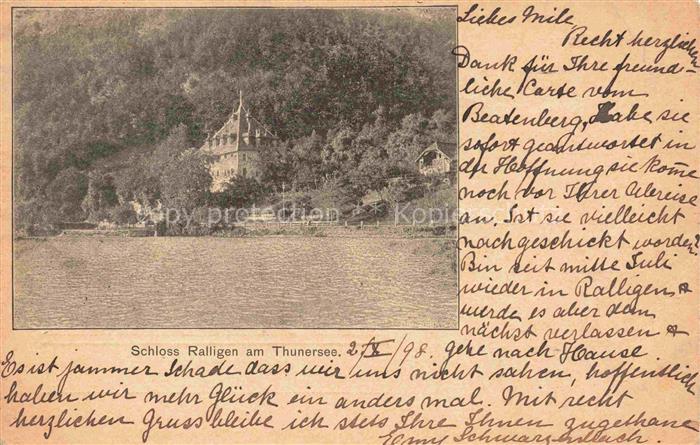 Liebes Mile
Recht herzlichen
Dank für Ihre freund-
liche Carte vom
Beatenberg, Habe sie
sofort geantwortet in
der Hoffnung sie kome
noch vor Ihrer Abreise
an. Ist sie vielleicht
nachgeschickt worden?
Bin seit mitte Juli
wieder in Ralligen &
werde es aber dem
nächst verlassen &
Schloss Ralligen am Thunersee. 2/X/98. gehe nach Hause
Es ist jammer Schade dass wir uns nicht sahen, hoffentlich
haben wir mehr Glück ein anders mal. Mit recht
herzlichen Gruss bleibe ich stets Ihre Ihnen zugethane
Emy Schwarz
copy protection
Schwarz